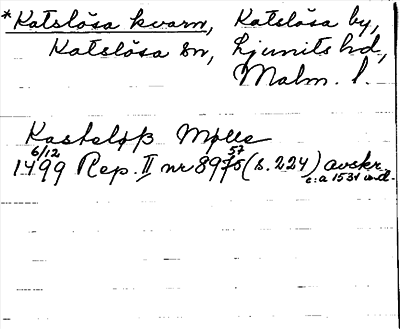 *Katslösa kvarn, Katslösa by,
Katslösa sn, Ljunits hd,
Malm. l.
Kasteløβ Mølle
6/12 57
1499 Rep. II nr 8975 (s. 224) avskr.
c:a 1531 ind.